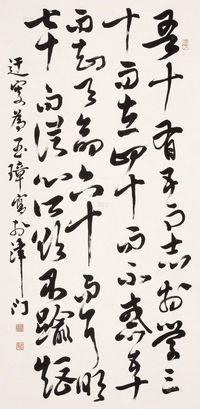 吾十有五而志於學三
十而立四十而不惑五十
而知天命六十而耳順
七十而從心所欲不踰矩
為玉璋寫於津門